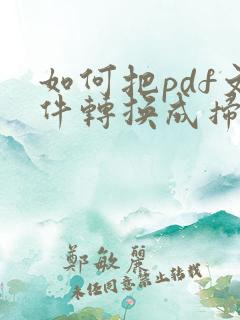 如何把pdf文
件轉換成掃
鄭敏麗
未经同意禁止转载